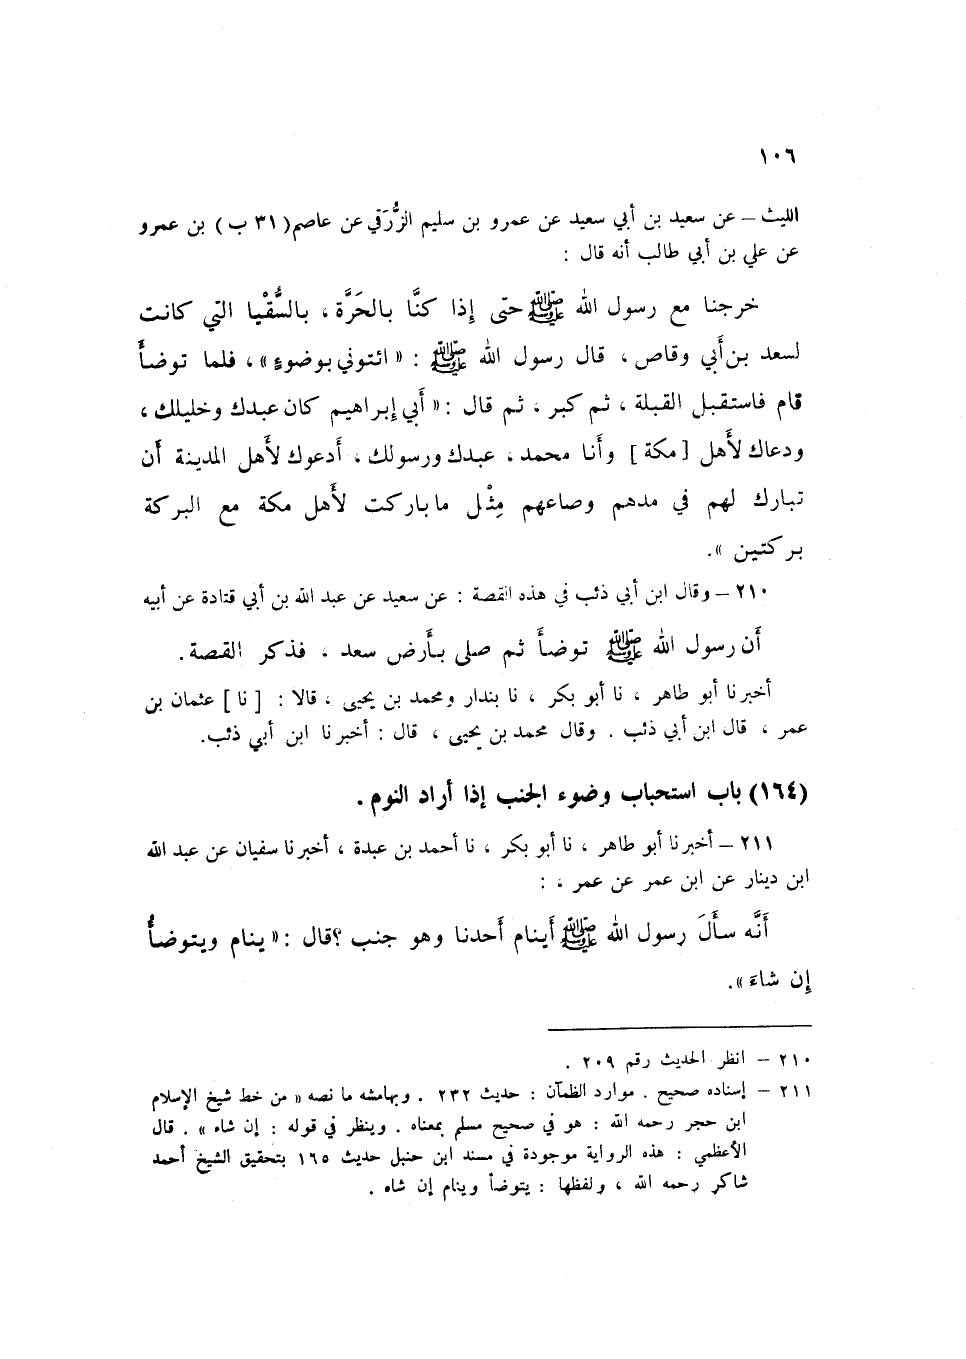 ١٠٦
الليث – عن سعيد بن أبي سعيد عن عمرو بن سليم الزُّرَقي عن عاصم (٣١ ب) بن عمرو
عن علي بن أبي طالب أنه قال :
خرجنا مع رسول الله ﷺ حتى إذا كنَّا بالحَرَّة ، بالسُّقْيا التي كانت
لسعد بن أَبي وقاص ، قال رسول الله ﷺ : « ائتوني بوضوءٍ » ، فلما توضأَ
قام فاستقبل القبلة ، ثم كبر ، ثم قال : « أَبي إبراهيم كان عبدك وخليلك ،
ودعاك لأَهل [ مكة ] وأَنا محمد ، عبدك ورسولك ، أَدعوك لأَهل المدينة أَن
تبارك لهم في مدهم وصاعهم مِثْل ما باركت لأَهل مكة مع البركة
بركتين » .
٢١٠ – وقال ابن أبي ذئب في هذه القصة : عن سعيد عن عبد الله بن أبي قتادة عن أبيه
أَن رسول الله ﷺ توضأَ ثم صلى بأَرض سعد ، فذكر القصة .
أخبرنا أبو طاهر ، نا أبو بكر ، نا بندار ومحمد بن يحيى ، قالا : [ نا ] عثمان بن
عمر ، قال ابن أبي ذئب . وقال محمد بن يحيى ، قال : أخبرنا ابن أبي ذئب .
(١٦٤) باب استحباب وضوء الجنب إذا أراد النوم .
٢١١ – أخبرنا أبو طاهر ، نا أبو بكر ، نا أحمد بن عبدة ، أخبرنا سفيان عن عبد الله
ابن دينار عن ابن عمر عن عمر ، :
أَنَّه سأَلَ رسول الله ﷺ أَينام أَحدنا وهو جنب ؟ قال : « ينام ويتوضأُ
إِن شاءَ » .
٢١٠ – انظر الحديث رقم ٢٠٩ .
٢١١ – إسناده صحيح . موارد الظمآن : حديث ٢٣٢ . وبهامشه ما نصه « من خط شيخ الإسلام
ابن حجر رحمه الله : هو في صحيح مسلم بمعناه . وينظر في قوله : إن شاء » . قال
الأعظمي : هذه الرواية موجودة في مسند ابن حنبل حديث ١٦٥ بتحقيق الشيخ أحمد
شاكر رحمه الله ، ولفظها : يتوضأ وينام إن شاء .